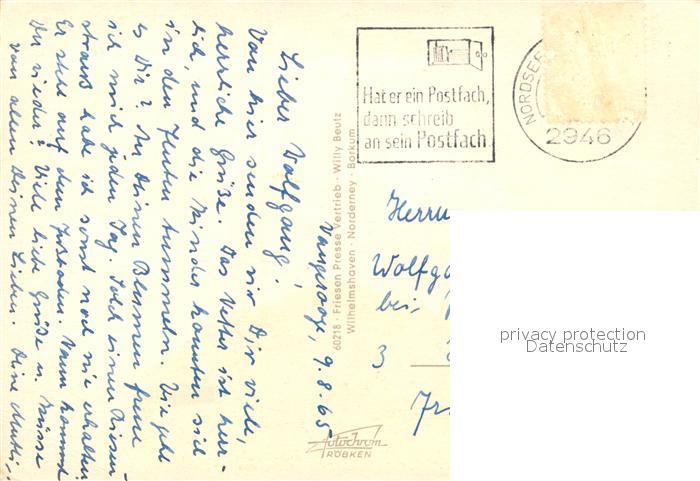 Wangerooge, 9.8.65
Lieber Wolfgang!
Von hier senden wir Dir viele,
herrliche Grüße. Das Wetter ist herr-
lich, und die Kinder konnten sich
in den Fluten tummeln. Wie geht
es Dir? An Deinen Blumen freue
ich mich jeden Tag. Solch einen Riesen-
strauß habe ich sonst noch nie erhalten.
Er steht auf dem Fußboden. Wann kommst
Du wieder? Viele liebe Grüße u. Küsse
von allen Deinen Lieben. Deine Mutti
60218 · Friesen Presse Vertrieb · Willy Beutz
Wilhelmshaven · Norderney · Borkum
Hat er ein Postfach,
dann schreib
an sein Postfach
NORDSEE
2946
Herrn
Wolfga
bei
3
Fr
Autochrom
RÖBKEN
privacy protection
Datenschutz